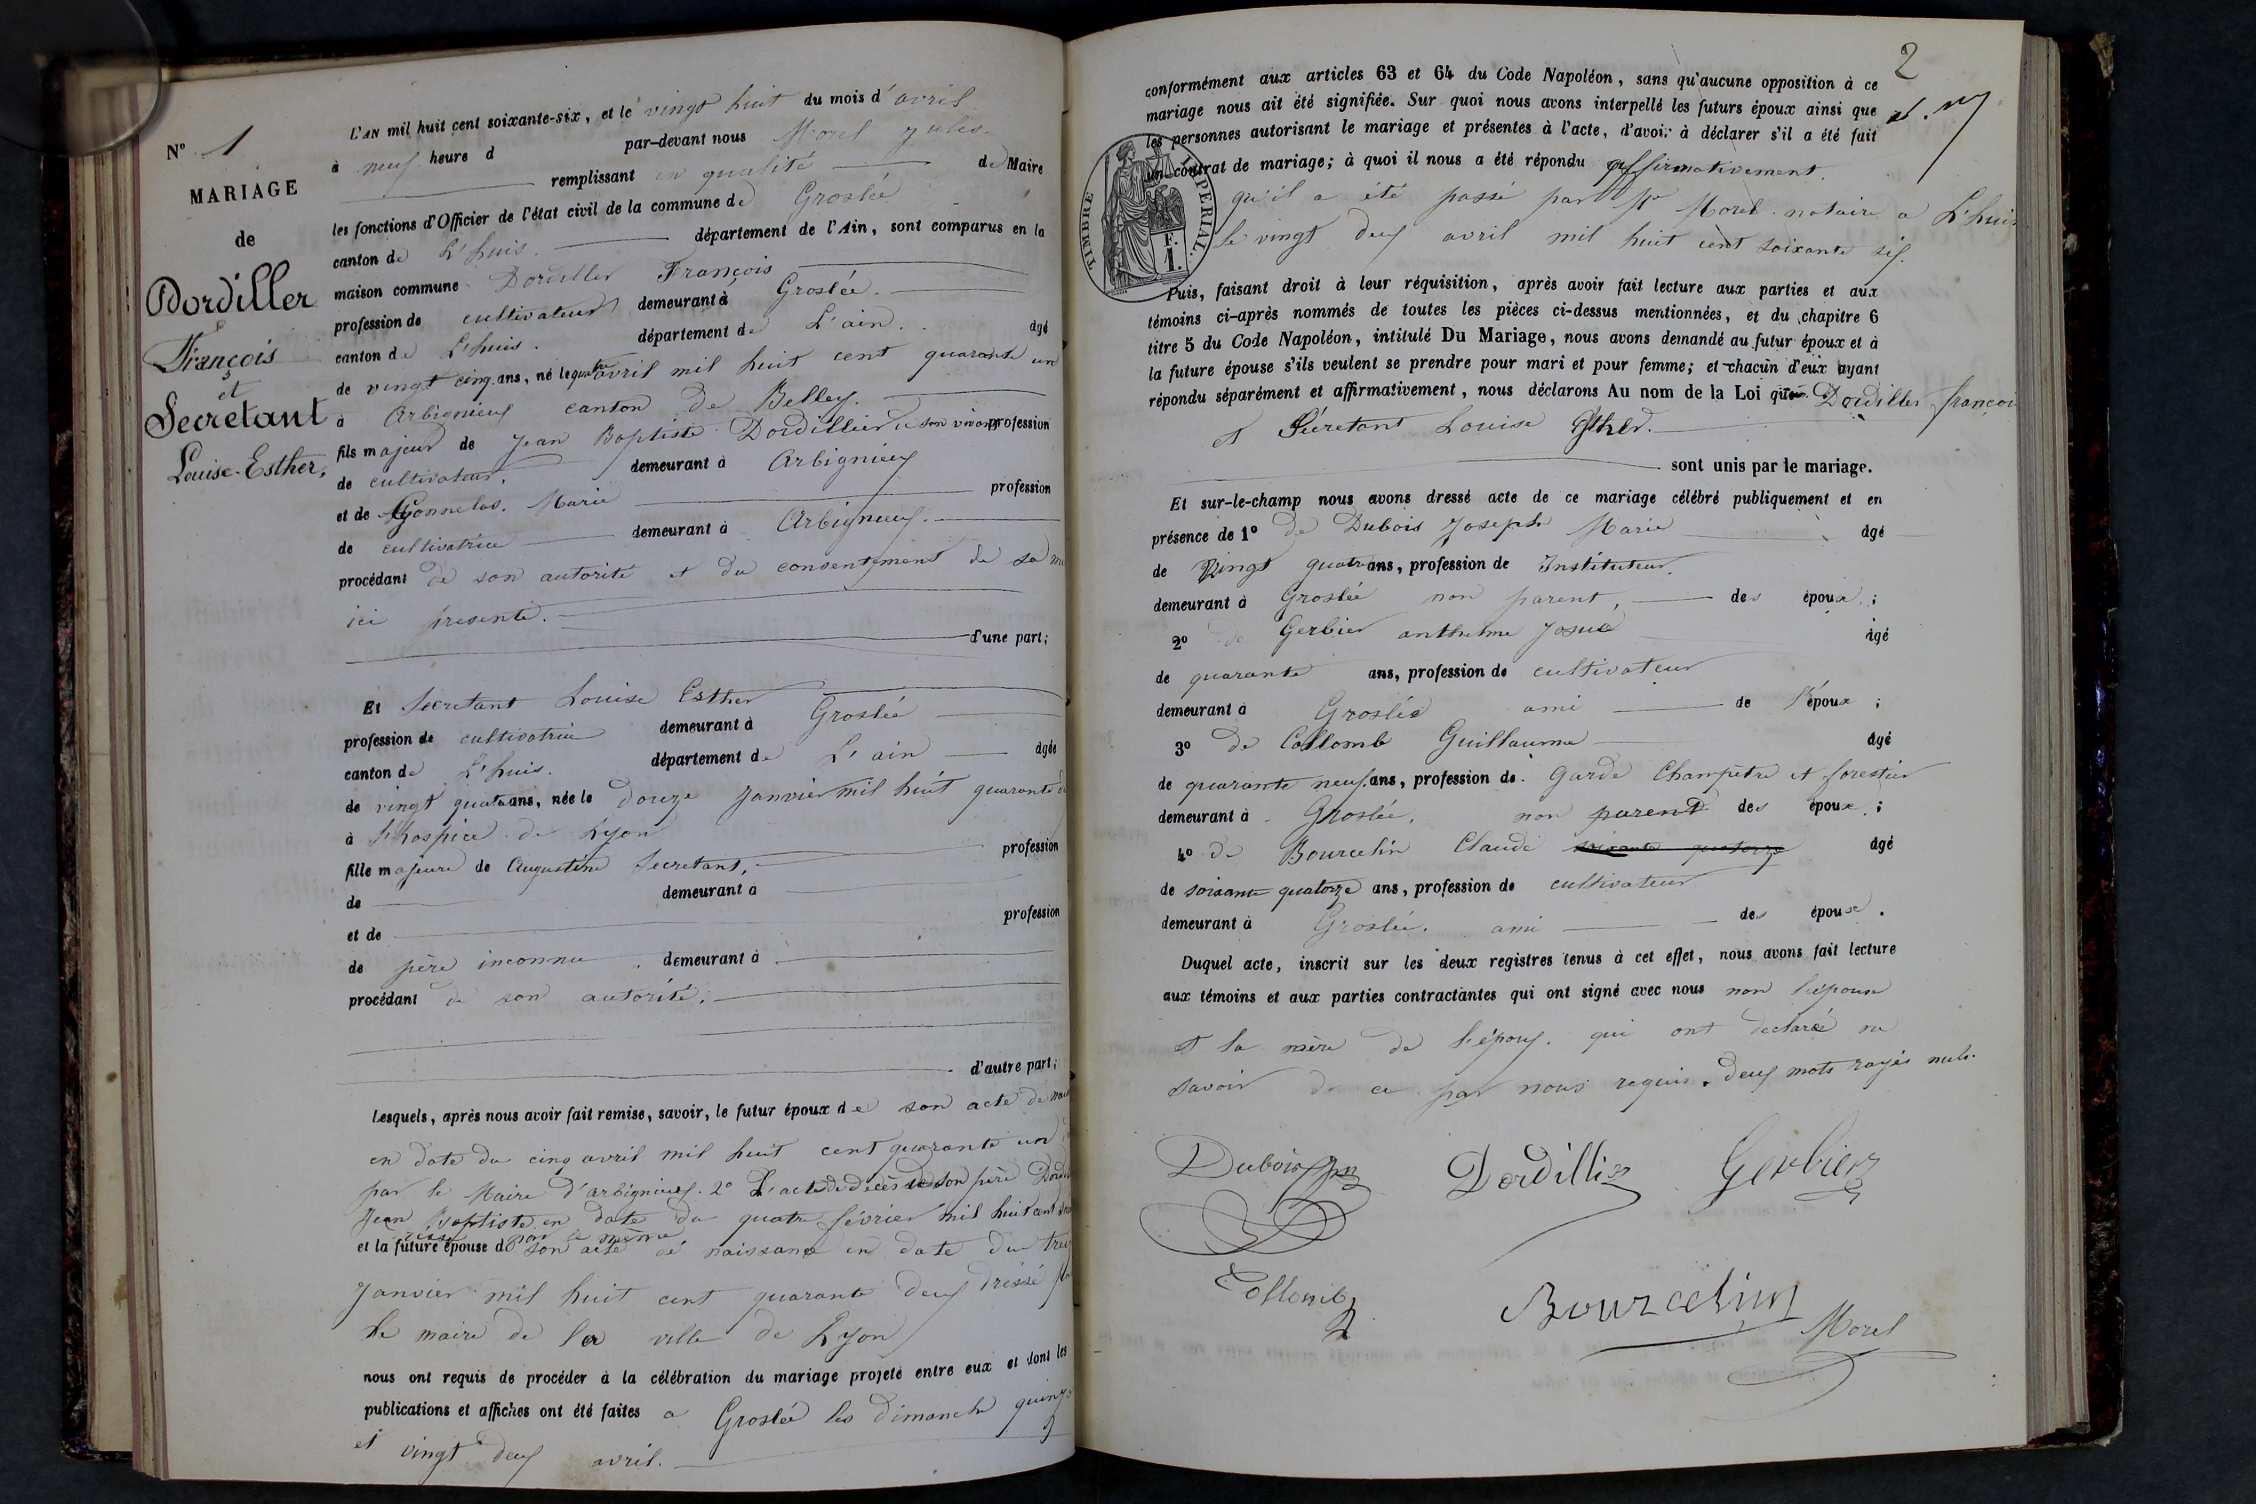 N° 1
MARIAGE
de
Dordiller
François
et
Secretant
Louise-Esther,
L'AN mil huit cent soixante-six, et le vingt huit du mois d'avril
à neuf heure d par-devant nous Morel Jules
remplissant en qualité de Maire
les fonctions d'Officier de l'état civil de la commune de Groslée
canton de L'huis. département de l'Ain, sont comparus en la
maison commune Dordiller François
profession de cultivateur demeurant à Groslée.
canton de L'huis. département de L'ain. âgé
de vingt cinq ans, né le quatre avril mil huit cent quarante un
à Arbignieux canton de Belley.
fils majeur de Jean Baptiste Dordillier de son vivant profession
de cultivateur. demeurant à Arbignieux
et de Gonnelas. Marie profession
de cultivatrice demeurant à Arbignieux.
procédant de son autorité et du consentement de sa
ici presente.
d'une part;
Et Secretant Louise Esther
profession de cultivatrice demeurant à Groslée
canton de L'huis. département de L'ain âgée
de vingt quatre ans, née le douze Janvier mil huit quarante
à l'hospice de Lyon
fille majeure de Augustine Secretant, profession
de demeurant à
et de profession
de père inconnu demeurant à
procédant de son autorité.
d'autre part;
Lesquels, après nous avoir fait remise, savoir, le futur époux de son acte de
en date du cinq avril mil huit cent quarante un
par le Maire d'arbignieux. 2° L'acte de décès de son père
Jean Baptiste en date du quatre février mil huit cent
par le même
et la future épouse de son acte de naissance en date du
Janvier mil huit cent quarante deux dressé
le maire de la ville de Lyon
nous ont requis de procéder à la célébration du mariage projeté entre eux et dont les
publications et affiches ont été faites a Groslée les dimanche quinze
et vingt deux avril.
2
conformément aux articles 63 et 64 du Code Napoléon, sans qu'aucune opposition à ce
mariage nous ait été signifiée. Sur quoi nous avons interpellé les futurs époux ainsi que
les personnes autorisant le mariage et présentes à l'acte, d'avoir à déclarer s'il a été fait
un contrat de mariage; à quoi il nous a été répondu affirmativement.
qu'il a été passé par Me Morel notaire a L'huis
le vingt deux avril mil huit cent soixante six.
TIMBRE IMPERIAL.
1 F.
Puis, faisant droit à leur réquisition, après avoir fait lecture aux parties et aux
témoins ci-après nommés de toutes les pièces ci-dessus mentionnées, et du chapitre 6
titre 5 du Code Napoléon, intitulé Du Mariage, nous avons demandé au futur époux et à
la future épouse s'ils veulent se prendre pour mari et pour femme; et chacun d'eux ayant
répondu séparément et affirmativement, nous déclarons Au nom de la Loi que Dordiller françois
et Sécretant Louise Esther.
sont unis par le mariage.
Et sur-le-champ nous avons dressé acte de ce mariage célébré publiquement et en
présence de 1° de Dubois Joseph Marie âgé
de vingt quatre ans, profession de Instituteur.
demeurant à Groslée non parent, des époux;
2° de Gerbier anthelme Josué âgé
de quarante ans, profession de cultivateur
demeurant à Groslée ami de l'époux;
3° de Collomb Guillaume âgé
de quarante neuf ans, profession de Garde Champêtre et forestier
demeurant à Groslée. non parent des époux;
4° de Bourcelin Claude soixante quatorze âgé
de soixante quatorze ans, profession de cultivateur
demeurant à Groslée. ami des époux.
Duquel acte, inscrit sur les deux registres tenus à cet effet, nous avons fait lecture
aux témoins et aux parties contractantes qui ont signé avec nous non l'épouse
et la mère de l'époux. qui ont declaré ne
savoir de ce par nous requis. deux mots rayés nuls.
Dubois Dordillier Gerbier
Collomb
Bourcelin
Morel